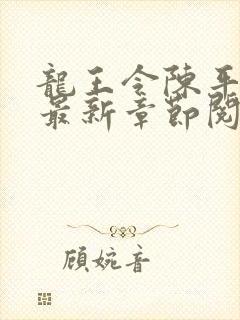 龍王令陳平
最新章節閱
顾婉音